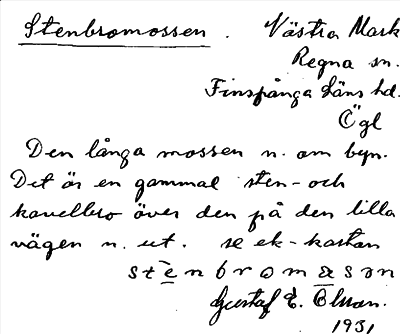 Stenbromossen. Västra Mark
Regna sn.
Finspånga läns hd.
Ögl
Den långa mossen n. om byn.
Det är en gammal sten- och
kavelbro över den på den lilla
vägen n. ut. se ek-kartan
Gustaf E. Olsson.
1931